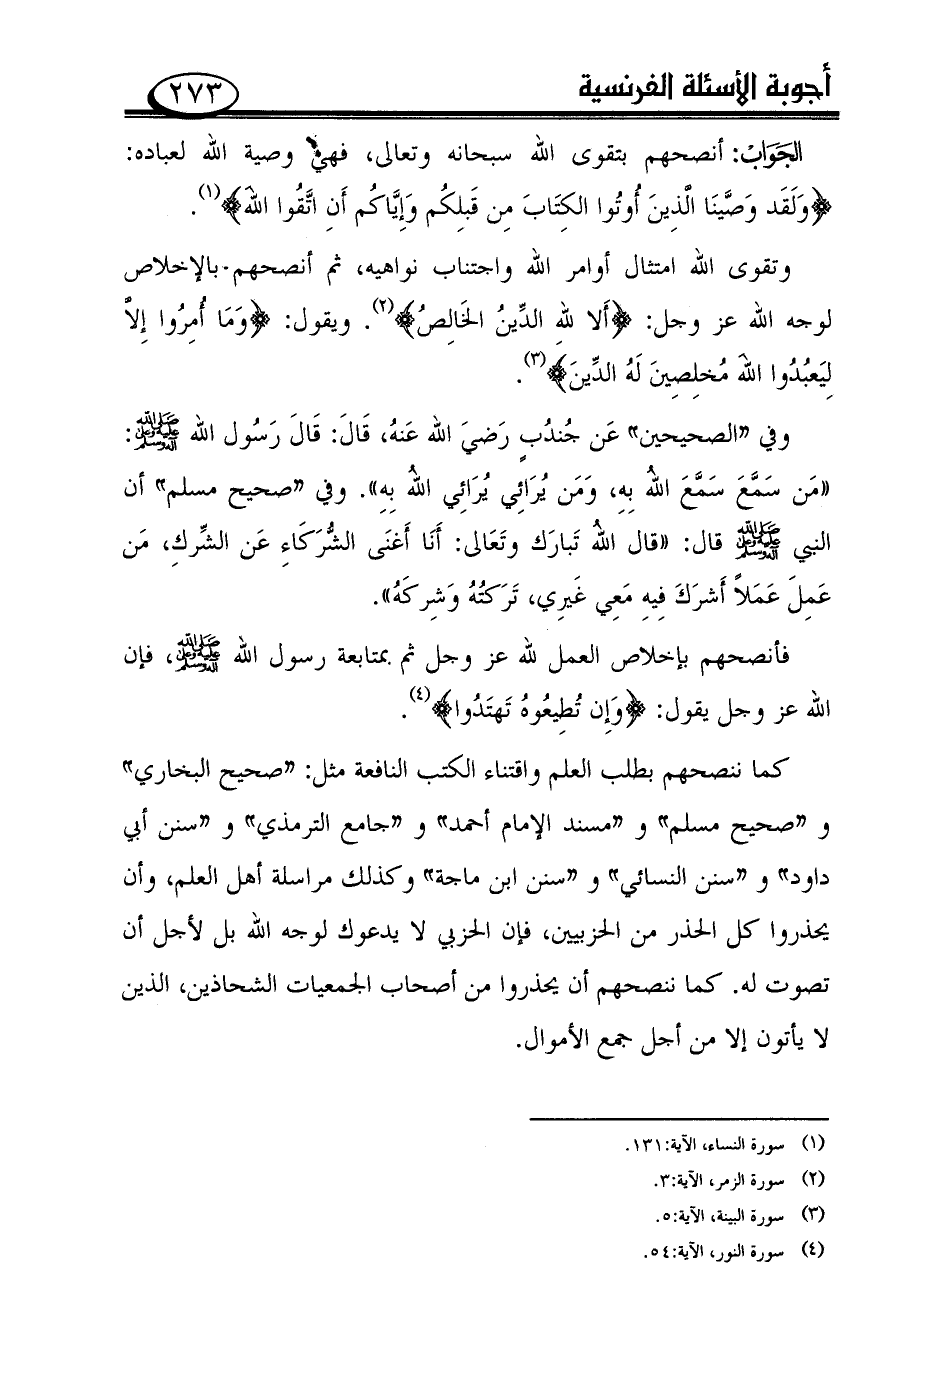 أجوبة الأسئلة الفرنسية
٢٧٣
الجَوَابُ: أنصحهم بتقوى الله سبحانه وتعالى، فهي وصية الله لعباده:
﴿وَلَقَد وَصَّينَا الَّذِينَ أُوتُوا الكِتَابَ مِن قَبلِكُم وَإِيَّاكُم أَنِ اتَّقُوا اللهَ﴾(١).
وتقوى الله امتثال أوامر الله واجتناب نواهيه، ثم أنصحهم بالإخلاص
لوجه الله عز وجل: ﴿أَلا للهِ الدِّينُ الخَالِصُ﴾(٢). ويقول: ﴿وَمَا أُمِرُوا إِلاَّ
لِيَعبُدُوا اللهَ مُخلِصِينَ لَهُ الدِّينَ﴾(٣).
وفي "الصحيحين" عَن جُندُبٍ رَضيَ الله عَنهُ، قَالَ: قَالَ رَسُول الله ﷺ:
«مَن سَمَّعَ سَمَّعَ اللهُ بِهِ، وَمَن يُرَائِي يُرَائِي اللهُ بِهِ». وفي "صحيح مسلم" أن
النبي ﷺ قال: «قال اللهُ تَبارَك وتَعَالى: أَنَا أَغنَى الشُّرَكَاءِ عَن الشِّركِ، مَن
عَمِلَ عَمَلاً أَشرَكَ فِيهِ مَعِي غَيرِي، تَرَكتُهُ وَشِركَهُ».
فأنصحهم بإخلاص العمل لله عز وجل ثم بمتابعة رسول الله ﷺ، فإن
الله عز وجل يقول: ﴿وَإِن تُطِيعُوهُ تَهتَدُوا﴾(٤).
كما ننصحهم بطلب العلم واقتناء الكتب النافعة مثل: "صحيح البخاري"
و "صحيح مسلم" و "مسند الإمام أحمد" و "جامع الترمذي" و "سنن أبي
داود" و "سنن النسائي" و "سنن ابن ماجة" وكذلك مراسلة أهل العلم، وأن
يحذروا كل الحذر من الحزبيين، فإن الحزبي لا يدعوك لوجه الله بل لأجل أن
تصوت له. كما ننصحهم أن يحذروا من أصحاب الجمعيات الشحاذين، الذين
لا يأتون إلا من أجل جمع الأموال.
(١) سورة النساء، الآية:١٣١.
(٢) سورة الزمر، الآية:٣.
(٣) سورة البينة، الآية:٥.
(٤) سورة النور، الآية:٥٤.